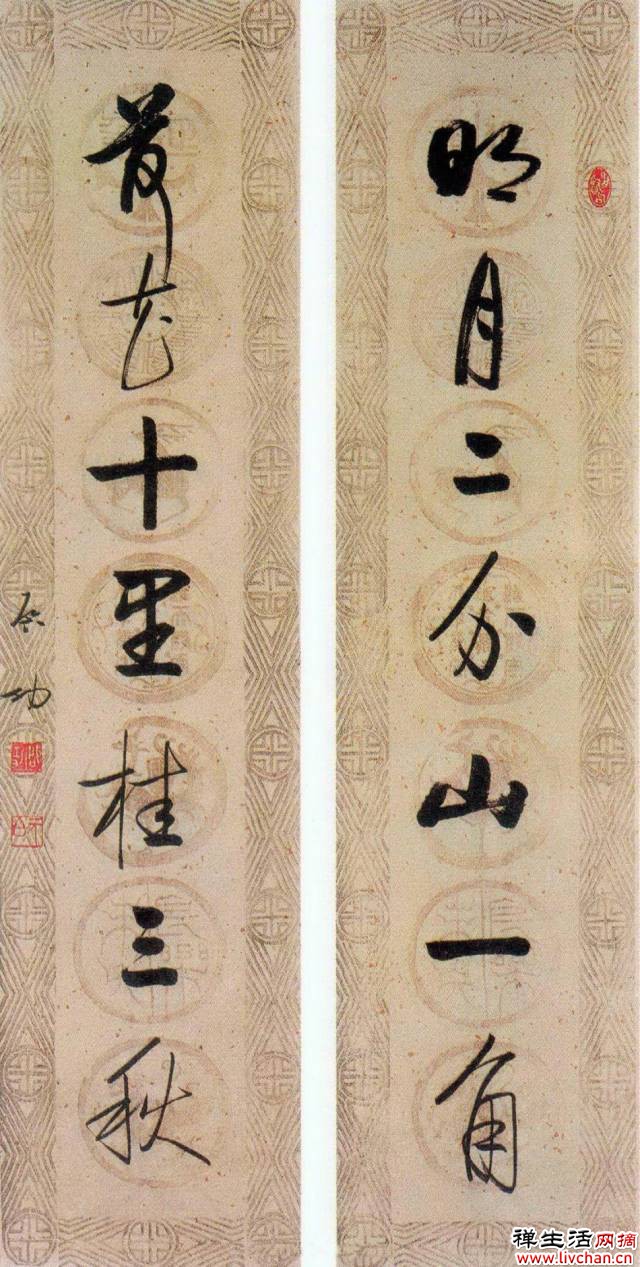 明月二分山一角
荷花十里桂三秋
启功
禅生活网摘
www.livchan.cn